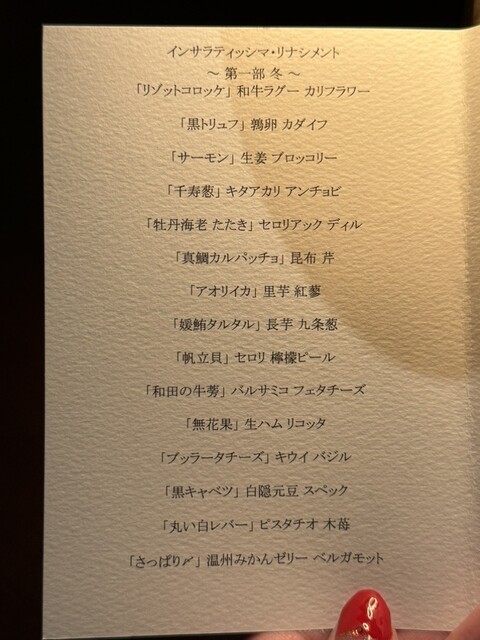 インサラティッシマ・リナシメント
～ 第一部 冬 ～
「リゾットコロッケ」 和牛ラグー カリフラワー
「黒トリュフ」 鶉卵 カダイフ
「サーモン」 生姜 ブロッコリー
「千寿葱」 キタアカリ アンチョビ
「牡丹海老 たたき」 セロリアック ディル
「真鯛カルパッチョ」 昆布 芹
「アオリイカ」 里芋 紅蓼
「媛鮪タルタル」 長芋 九条葱
「帆立貝」 セロリ 檸檬ピール
「和田の牛蒡」 バルサミコ フェタチーズ
「無花果」 生ハム リコッタ
「ブッラータチーズ」 キウイ バジル
「黒キャベツ」 白隠元豆 スペック
「丸い白レバー」 ピスタチオ 木苺
「さっぱり〆」 温州みかんゼリー ベルガモット